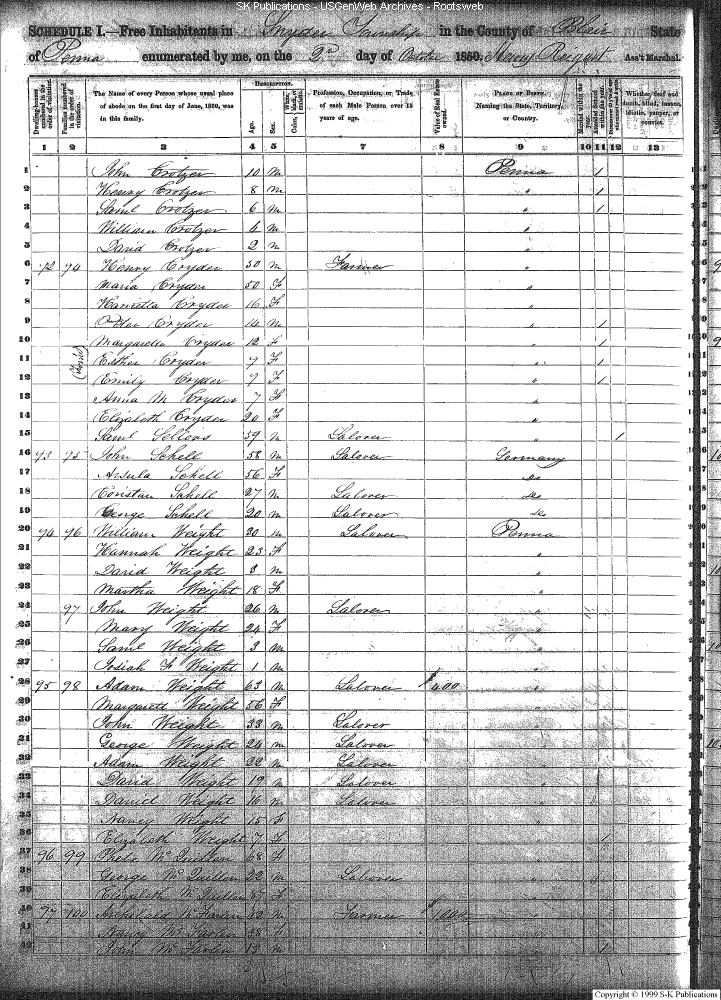 SK Publications - USGenWeb Archives - Rootsweb
SCHEDULE I.—Free Inhabitants in Snyder Township in the County of Blair State
of Penna enumerated by me, on the 2n day of October 1850. Henry Reigart Ass't Marshal.
Dwelling-houses numbered in the order of visitation. Families numbered in the order of visitation. The Name of every Person whose usual place of abode on the first day of June, 1850, was in this family. DESCRIPTION. Age. Sex. Color, White, black, or mulatto. Profession, Occupation, or Trade of each Male Person over 15 years of age. Value of Real Estate owned. PLACE OF BIRTH. Naming the State, Territory, or Country. Married within the year. Attended School within the year. Whether deaf and dumb, blind, insane, idiotic, pauper, or convict.
1 2 3 4 5 6 7 8 9 10 11 12 13
1 John Crotzer 10 M Penna 1
2 Henry Crotzer 8 M " 1
3 Saml Crotzer 6 M " 1
4 William Crotzer 4 M "
5 David Crotzer 2 M "
6 92 94 Henry Cryder 50 M Farmer "
7 Maria Cryder 50 F "
8 Harrietta Cryder 16 F "
9 Cryder 14 M " 1
10 Margaretta Cryder 12 F " 1
11 (Twins) Esther Cryder 9 F " 1
12 Emily Cryder 9 F " 1
13 Anna M Cryder 7 F "
14 Elizabeth Cryder 20 F "
15 Saml Sellers 39 M Laborer " 1
16 93 95 John Schell 58 M Laborer Germany
17 Arsula Schell 56 F Do
18 Cristian Schell 27 M Laborer Do
19 George Schell 20 M Laborer Do
20 94 96 William Weight 30 M Laborer Penna
21 Hannah Weight 23 F "
22 David Weight 3 M "
23 Martha Weight 18 F "
24 97 John Weight 26 M Laborer "
25 Mary Weight 24 F "
26 Saml Weight 3 M "
27 Josiah F Weight 1 M "
28 95 98 Adam Weight 63 M Laborer $400 "
29 Margarett Weight 56 F "
30 John Weight 33 M Laborer "
31 George Weight 24 M Laborer "
32 Adam Weight 22 M Laborer "
33 David Weight 19 M Laborer "
34 Daniel Weight 16 M Laborer "
35 Nancy Weight 15 F "
36 Elizabeth Weight 7 F " 1
37 96 99 McQuillen 68 F "
38 George McQuillen 22 M Laborer "
39 Elizabeth McQuillen F "
40 97 100 Archibald McFarlin 52 M Farmer "
41 Nancy McFarlin 38 F "
42 John McFarlin 13 M " 1
Copyright © 1999 S-K Publications